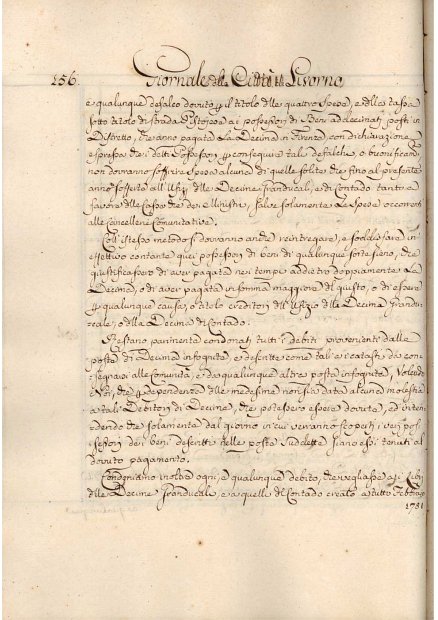 156. Giornale della Città di Livorno
e qualunque defalco dovuto p il titolo delle quattro Spese, e della tassa
sotto titolo di strada Pistojese ai possessori di Beni addecimati posti in
Distretto, che anno pagata La Decima in Firenze con dichiarazione
espressa che i detti Possessori p conseguire tali defalchi, o bonificazni
non dovranno soffrire spesa alcuna di quelle solite che fino al presente
anno sofferte all'Ufizj delle Decime Granducali, e di Contado tanto a
favore delle Casse che dei Ministri, salve solamente Le Spese occorrenti
alle Cancellerie Comunitative.
Coll'istesso metodo si dovranno anche reintregare, e soddisfare in
effettivo contante quei possessori di beni di qualunque sorte sieno, che
giustificassero di aver pagata nei tempi addietro doppiamente La
Decima, o di aver pagata in somma maggiore del giusto, o di essere
p qualunque causa, o titolo creditori dell'Ufizio della Decima Grandu-
cale, o della Decima di Contado.
Restano parimente condonati tutti i debiti provenienti dalle
poste di Decima incognite, e descritte come tali ne i catasti da con-
segnarsi alle Comunità, e da qualunque altra posta incognita, Volendo
Noi, che p dependenza delle medesime non sia data alcuna molestia
a tali Debitori di Decima, che potessero essere dovute, ed inten-
dendo che solamente dal giorno in cui verranno scoperti i veri pos-
sessori dei beni descritti nelle poste Suddette siano essi tenuti al
dovuto pagamento.
Condoniamo inoltre ogni, e qualunque debito, che vegliasse a i Libri
delle Decime Granducali, e a quelli di Contado creato a tutto Febbrajo
1781